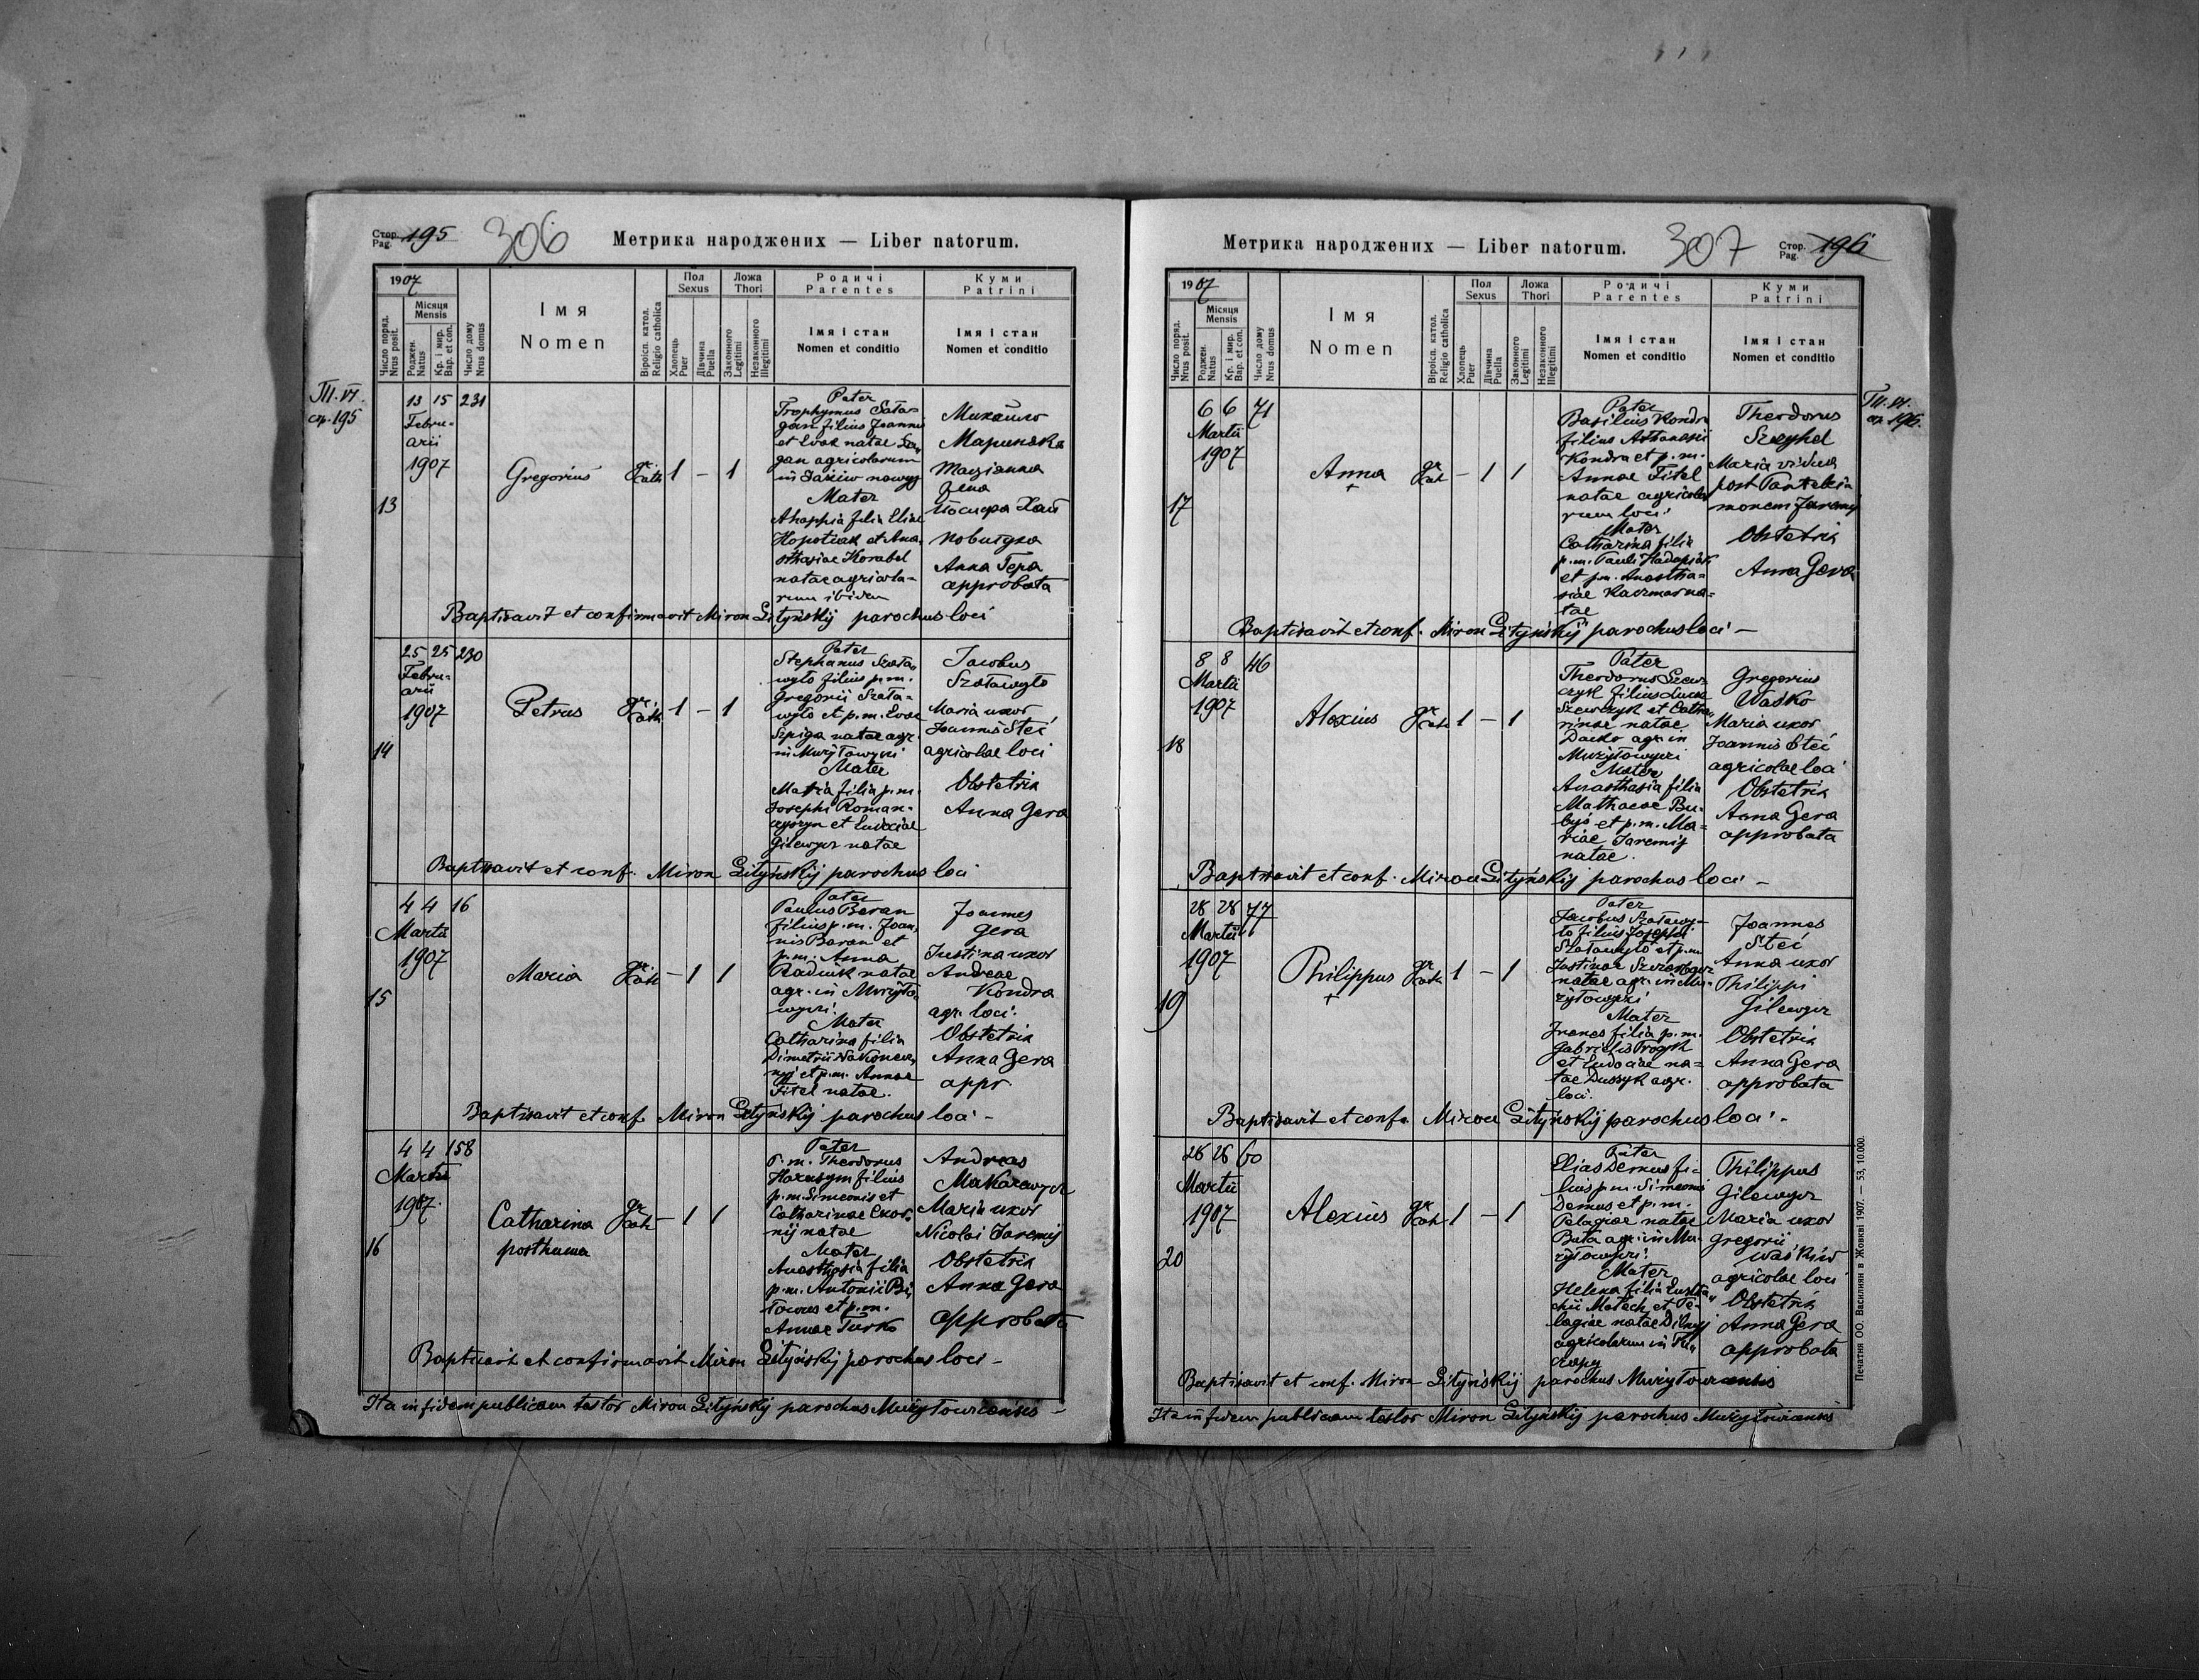 Стор.
Pag. 195
306
Метрика народжених — Liber natorum.
1907
Число поряд.
Nrus posit.
Місяця
Mensis
Роджен.
Natus
Кр. і мир.
Bap. et con.
Число дому
Nrus domus
Імя
Nomen
Віроісп. катол.
Religio catholica
Пол
Sexus
Хлопець
Puer
Дівчина
Puella
Ложа
Thori
Законного
Legitimi
Незаконного
Illegitimi
Родичі
Parentes
Імя і стан
Nomen et conditio
Куми
Patrini
Імя і стан
Nomen et conditio
Т.VI.
ср. 195
13
13 15 231
Febru-
arii
1907
Gregorius
gr. cath
1 – 1
Pater
Trophymus Sata-
gan filius Joannis
et Evae natae
gan agricolarum
in
Mater
Ahappia filia Eliae
Hopotiak et Ana-
sthasiae Korabel
natae agricola-
rum ibidem
Михайло
Мариняка
Марianna
жена
Йосифа
Anna Гера
approbata
Baptisavit et confirmavit Miron Lityńskij parochus loci
14
25 25 230
Febru-
arii
1907
Petrus
gr. cath
1 – 1
Pater
Stephanus Szała-
wyło filius p.m.
Gregorii Szała-
wyło et p.m. Evae
Szpiga natae agr.
in Mużyłowyci
Mater
Maria filia p.m.
Josephi Roman-
czyszyn et Eudoxiae
Gilewycz natae
Jacobus
Szaławyło
Maria uxor
Joannis Steć
agricolae loci
Obstetrix
Anna Gera
Baptisavit et conf. Miron Lityńskij parochus loci
15
4 4 16
Martii
1907
Maria
gr. cath
– 1 1
Pater
Paulus Baran
filius p.m. Joan-
nis Baran et
p.m. Anna
Radiuk natae
agr. in Mużyło-
wyci.
Mater
Catharina filia
Dimetrii Nakonecz-
nyj et p.m. Annae
Fitel natae.
Joannes
Gera
Justina uxor
Andreae
Kondra
agr. loci.
Obstetrix
Anna Gera
appr.
Baptisavit et conf. Miron Lityńskij parochus loci –
16
4 4 158
Martii
1907
Catharina
posthuma
gr. cath
– 1 1
Pater
P.m. Theodorus
Harasym filius
p.m. Simeonis et
Catharinae Skor-
nij natae
Mater
Anasthasia filia
p.m. Antonii
et p.m.
Annae Turko
Andreas
Makarewycz
Maria uxor
Nicolai Jaremij
Obstetrix
Anna Gera
approbata
Baptisavit et confirmavit Miron Lityńskij parochus loci –
Ita in fidem publicam testor Miron Lityńskij parochus Mużyłowicensis –
Метрика народжених — Liber natorum.
307
Стор.
Pag. 196
1907
Число поряд.
Nrus posit.
Місяця
Mensis
Роджен.
Natus
Кр. і мир.
Bap. et con.
Число дому
Nrus domus
Імя
Nomen
Віроісп. катол.
Religio catholica
Пол
Sexus
Хлопець
Puer
Дівчина
Puella
Ложа
Thori
Законного
Legitimi
Незаконного
Illegitimi
Родичі
Parentes
Імя і стан
Nomen et conditio
Куми
Patrini
Імя і стан
Nomen et conditio
Т.VI.
ср. 196.
17
6 6 71
Martii
1907
Anna
+
gr. cath
– 1 1
Pater
Basilius Kondra
filius Athanasii
Kondra et p.m.
Annae Fitel
natae agricola-
rum loci.
Mater
Catharina filia
p.m. Pauli
et p.m. Anastha-
siae Kaczmar na-
tae
Theodorus
Maria vidua
post Pantelei-
monem Jaremij
Obstetrix
Anna Gera
Baptisavit et conf. Miron Lityńskij parochus loci –
18
8 8 46
Martii
1907
Alexius
gr. cath
1 – 1
Pater
Theodorus Szew-
czyk filius Lucae
Szewczyk et Catha-
rinae natae
Dacko agr. in
Mużyłowyci
Mater
Anasthasia filia
Mathaeae Bu-
byś et p.m. Ma-
riae Jaremij
natae.
Gregorius
Waśko
Maria uxor
Joannis Steć
agricolae loci
Obstetrix
Anna Gera
approbata
Baptisavit et conf. Miron Lityńskij parochus loci –
19
28 28 77
Martii
1907
Philippus
+
gr. cath
1 – 1
Pater
Jacobus Szaławy-
ło filius Josephi
Szaławyło et p.m.
Justinae
natae agr. in Mu-
żyłowyci
Mater
filia p.m.
Gabrielis Procyk
et Eudociae na-
tae Duszyk agr.
loci.
Joannes
Steć
Anna uxor
Philippi
Gilewycz
Obstetrix
Anna Gera
approbata
Baptisavit et conf. Miron Lityńskij parochus loci –
20
26 26 60
Martii
1907
Alexius
gr. cath
1 – 1
Pater
Elias Demus fi-
lius p.m. Simeonis
Demus et p.m.
Pelagiae natae
Buta agr. in Mu-
żyłowyci.
Mater
Helena filia Eusta-
chii Matech et Pe-
lagiae natae Dilnyj
agricolarum in
Philippus
Gilewycz
Maria uxor
Gregorii
Waśkiw
agricolae loci
Obstetrix
Anna Gera
approbata
Baptisavit et conf. Miron Lityńskij parochus Mużyłowicensis
Ita in fidem publicam testor Miron Lityńskij parochus Mużyłowicensis
Печатня ОО. Василиян в Жовкві 1907. — 53, 10.000.